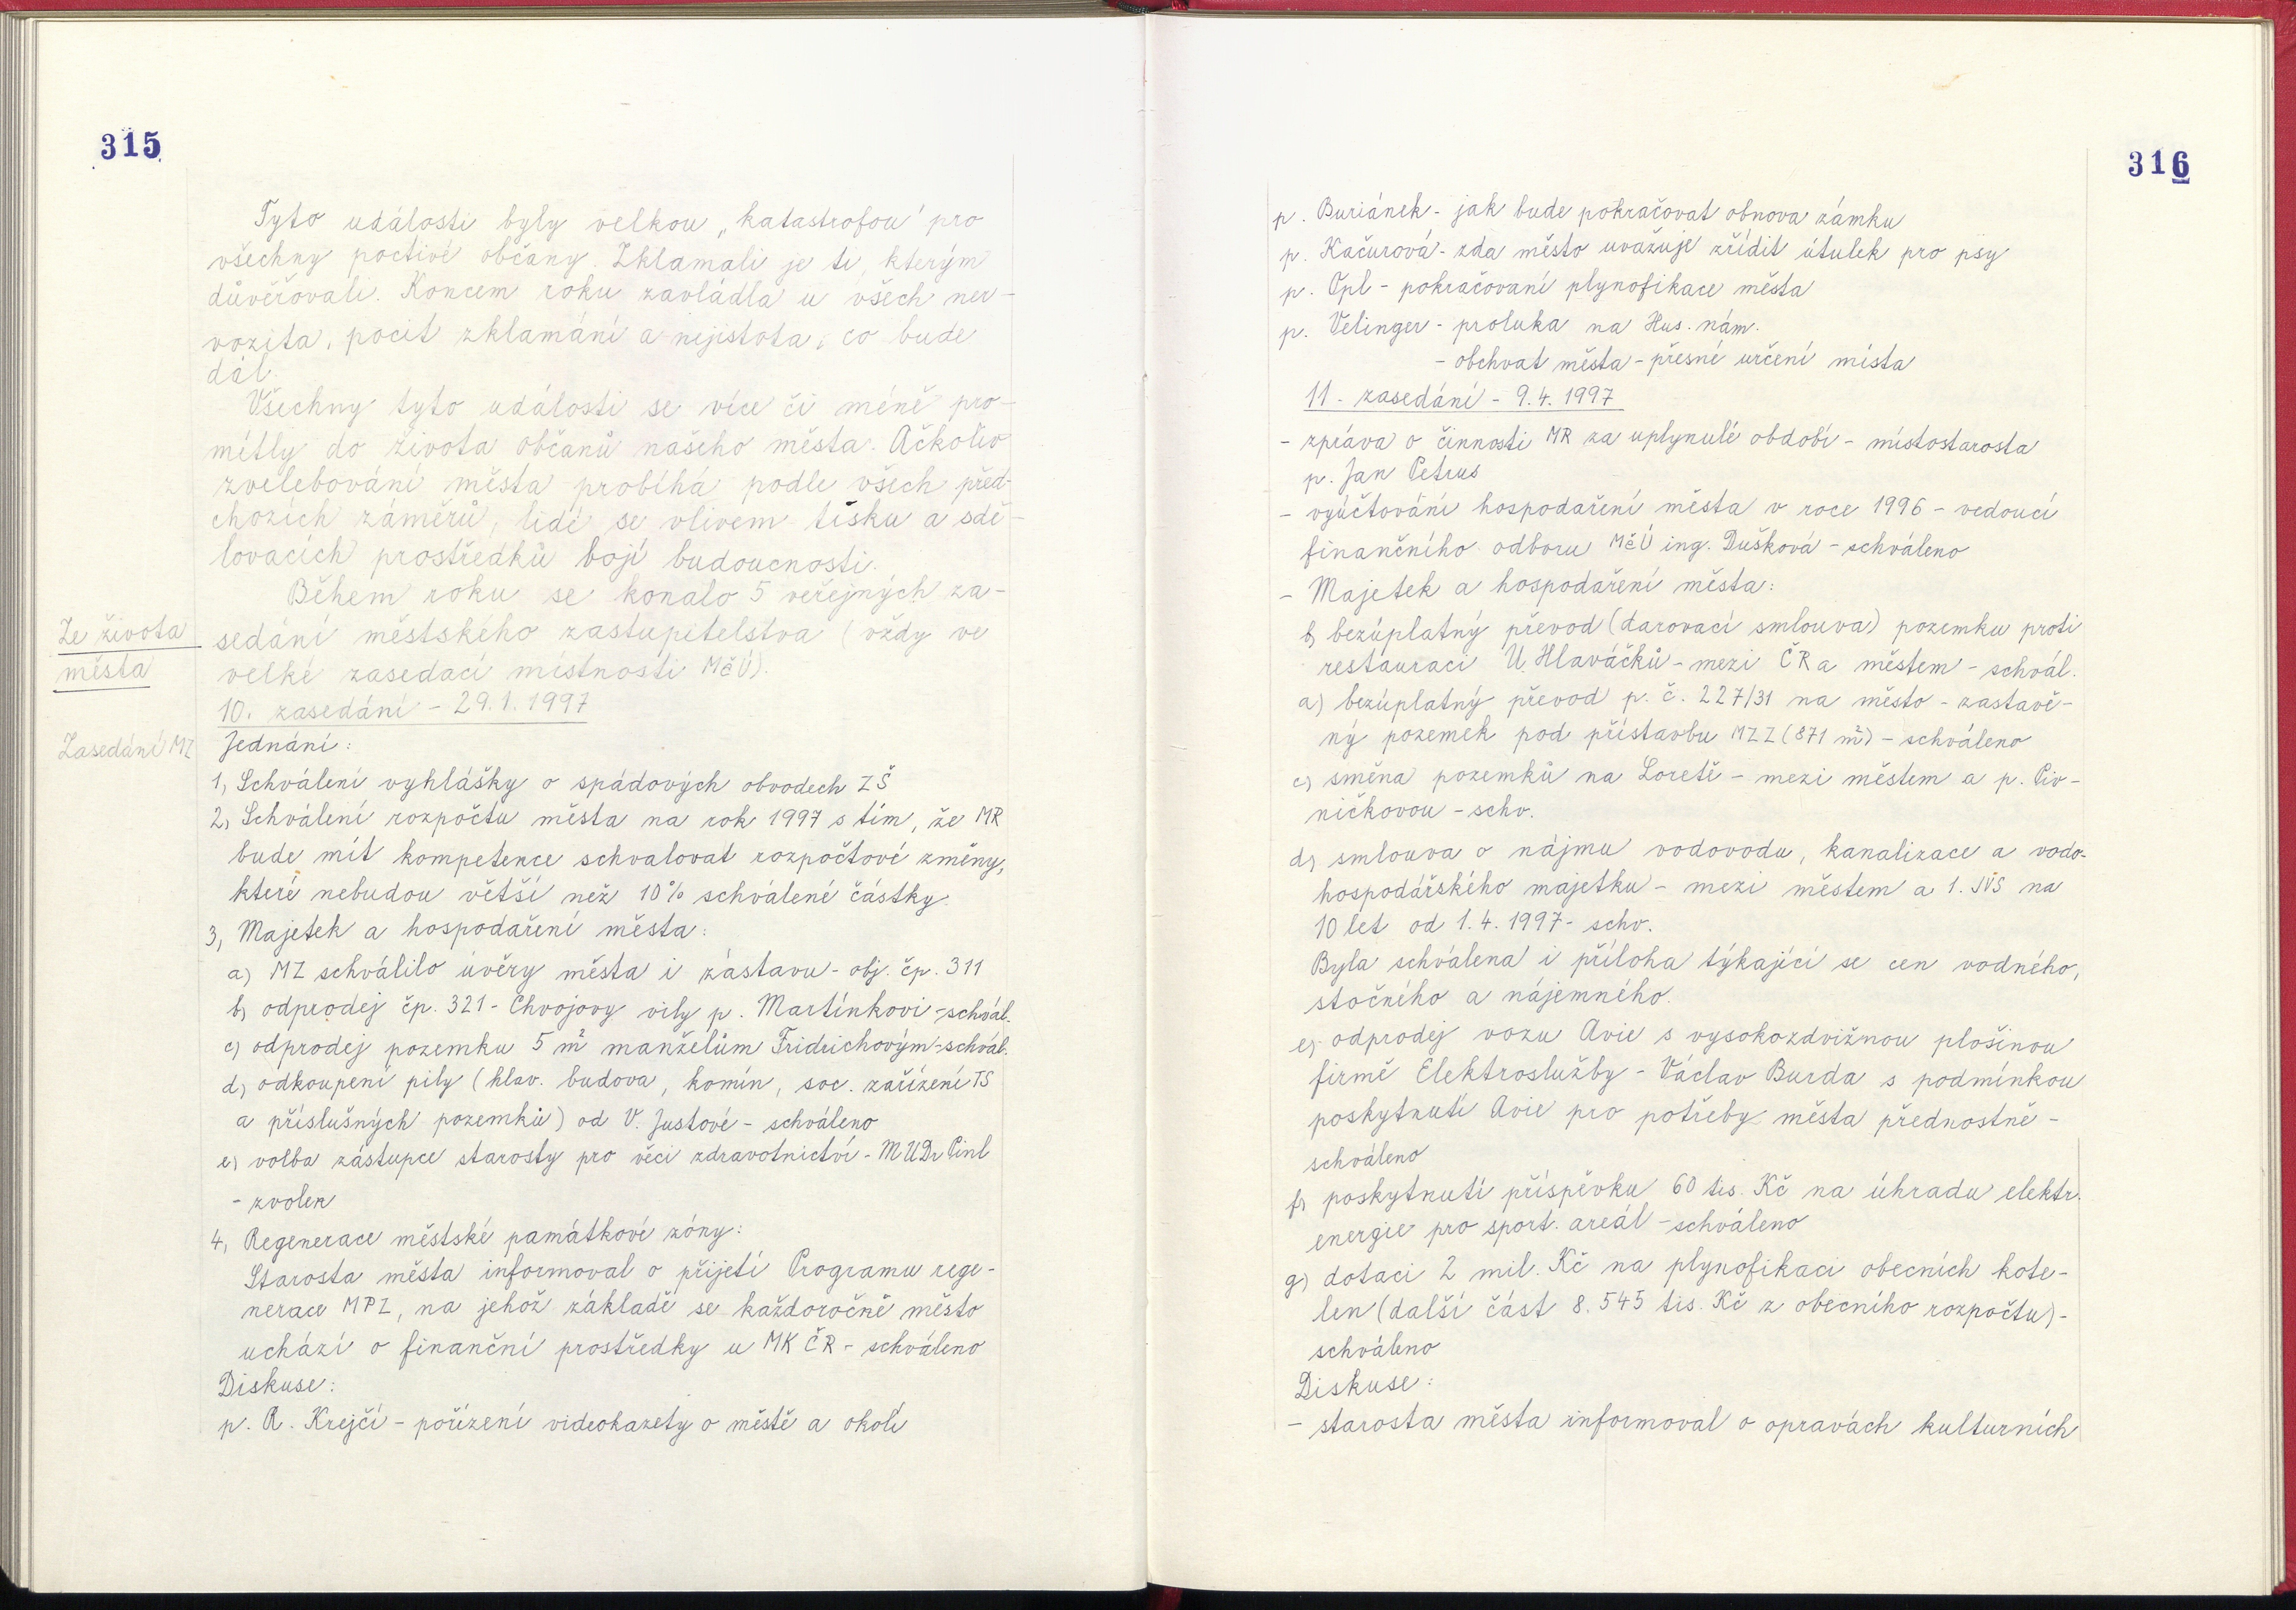 315
Tyto události byly velkou „katastrofou" pro
všechny poctivé občany. Zklamali je ti, kterým
důvěřovali. Koncem roku zavládla u všech ner-
vozita, pocit zklamání a nejistota, co bude
dál.
Všechny tyto události se více či méně pro-
mítly do života občanů našeho města. Ačkoliv
zvelebování města probíhá podle všech před-
chozích záměrů, lidé se vlivem tisku a sdě-
lovacích prostředků bojí budoucnosti.
Během roku se konalo 5 veřejných za-
Ze života
města
sedání městského zastupitelstva (vždy ve
velké zasedací místnosti MěÚ).
10. zasedání - 29.1.1997
Zasedání MZ
Jednání:
1, Schválení vyhlášky o spádových obvodech ZŠ
2, Schválení rozpočtu města na rok 1997 s tím, že MR
bude mít kompetence schvalovat rozpočtové změny,
které nebudou větší než 10% schválené částky.
3, Majetek a hospodaření města:
a) MZ schválilo úvěry města i zástavu - obj. čp. 311
b) odprodej čp. 321 - Chvojovy vily p. Martínkovi - schvál.
c) odprodej pozemku 5 m² manželům Fridrichovým - schvál.
d) odkoupení pily (hlav. budova, komín, soc. zařízení TS
a příslušných pozemků) od V. Justové - schváleno
e) volba zástupce starosty pro věci zdravotnictví - MUDr Pinl
- zvolen
4, Regenerace městské památkové zóny:
Starosta města informoval o přijetí Programu rege-
nerace MPZ, na jehož základě se každoročně město
uchází o finanční prostředky u MK ČR - schváleno
Diskuse:
p. R. Krejčí - pořízení videokazety o městě a okolí
316
p. Buriánek - jak bude pokračovat obnova zámku
p. Kačurová - zda město uvažuje zřídit útulek pro psy
p. Opl - pokračovaní plynofikace města
p. Velinger - proluka na Hus. nám.
- obchvat města - přesné určení místa
11. zasedání - 9.4.1997
- zpráva o činnosti MR za uplynulé období - místostarosta
p. Jan Petrus
- vyúčtování hospodaření města v roce 1996 - vedoucí
finančního odboru MěÚ ing. Dušková - schváleno
- Majetek a hospodaření města:
b) bezúplatný převod (darovací smlouva) pozemku proti
restauraci U Hlaváčků - mezi ČR a městem - schvál.
a) bezúplatný převod p. č. 227/31 na město - zastavě-
ný pozemek pod přístavbu MZZ (871 m²) - schváleno
c) směna pozemků na Loretě - mezi městem a p. Piv-
ničkovou - schv.
d) smlouva o nájmu vodovodu, kanalizace a vodo-
hospodářského majetku - mezi městem a 1. JVS na
10 let od 1.4.1997 - schv.
Byla schválena i příloha týkající se cen vodného,
stočného a nájemného.
e) odprodej vozu Avie s vysokozdvižnou plošinou
firmě Elektroslužby - Václav Burda s podmínkou
poskytnutí Avie pro potřeby města přednostně -
schváleno
f) poskytnutí příspěvku 60 tis. Kč na úhradu elektr.
energie pro sport. areál - schváleno
g) dotaci 2 mil. Kč na plynofikaci obecních kote-
len (další část 8.545 tis. Kč z obecního rozpočtu) -
schváleno
Diskuse:
- starosta města informoval o opravách kulturních